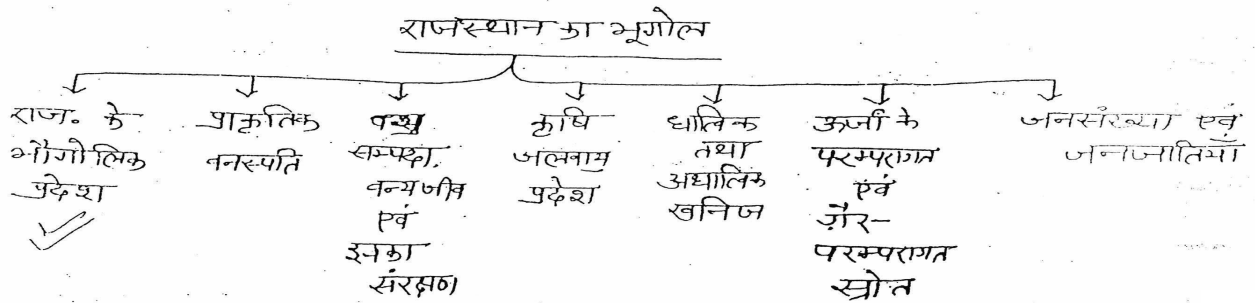 राजस्थान का भूगोल
राज. के
भौगोलिक
प्रदेश
प्राकृतिक
वनस्पति
पशु
सम्पदा,
वन्यजीव
एवं
इनका
संरक्षण
कृषि
जलवायु
प्रदेश
धात्विक
तथा
अधात्विक
खनिज
ऊर्जा के
परम्परागत
एवं
ग़ैर-
परम्परागत
स्रोत
जनसंख्या एवं
जनजातियाँ